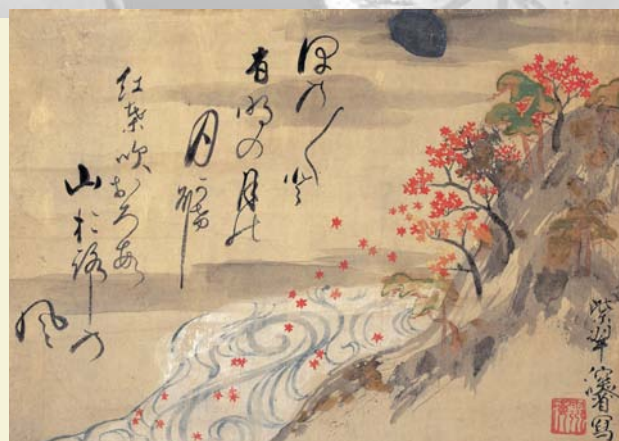 ほの〳〵と
有明の月の
月影に
紅葉吹おろす
山おろしの
風
紫翠深省寫